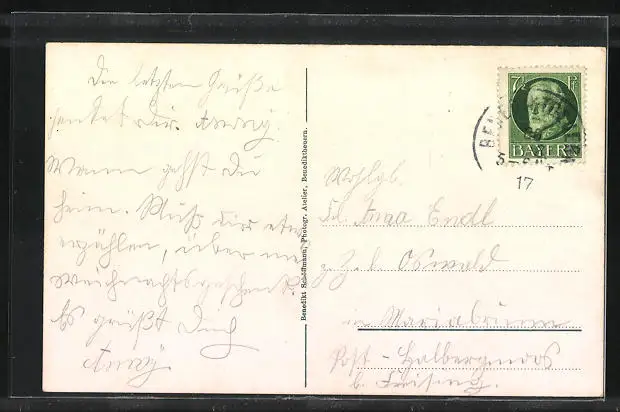 Die letzten Grüße
sendet Dir
Wann gehst Du
heim. Muß Dir etw
erzählen, über mei
weihnachtsgeschenk.
Es grüßt Dich
Benedikt Schöffmann, Photogr. Atelier, Benediktbeuern.
7½ Pf
BAYERN
BENE
17
Wohlgb.
Frl. Anna Endl
z. Z. b. Oswald
in Mariabrunn
Post - Halbergmoos
b. Freising.